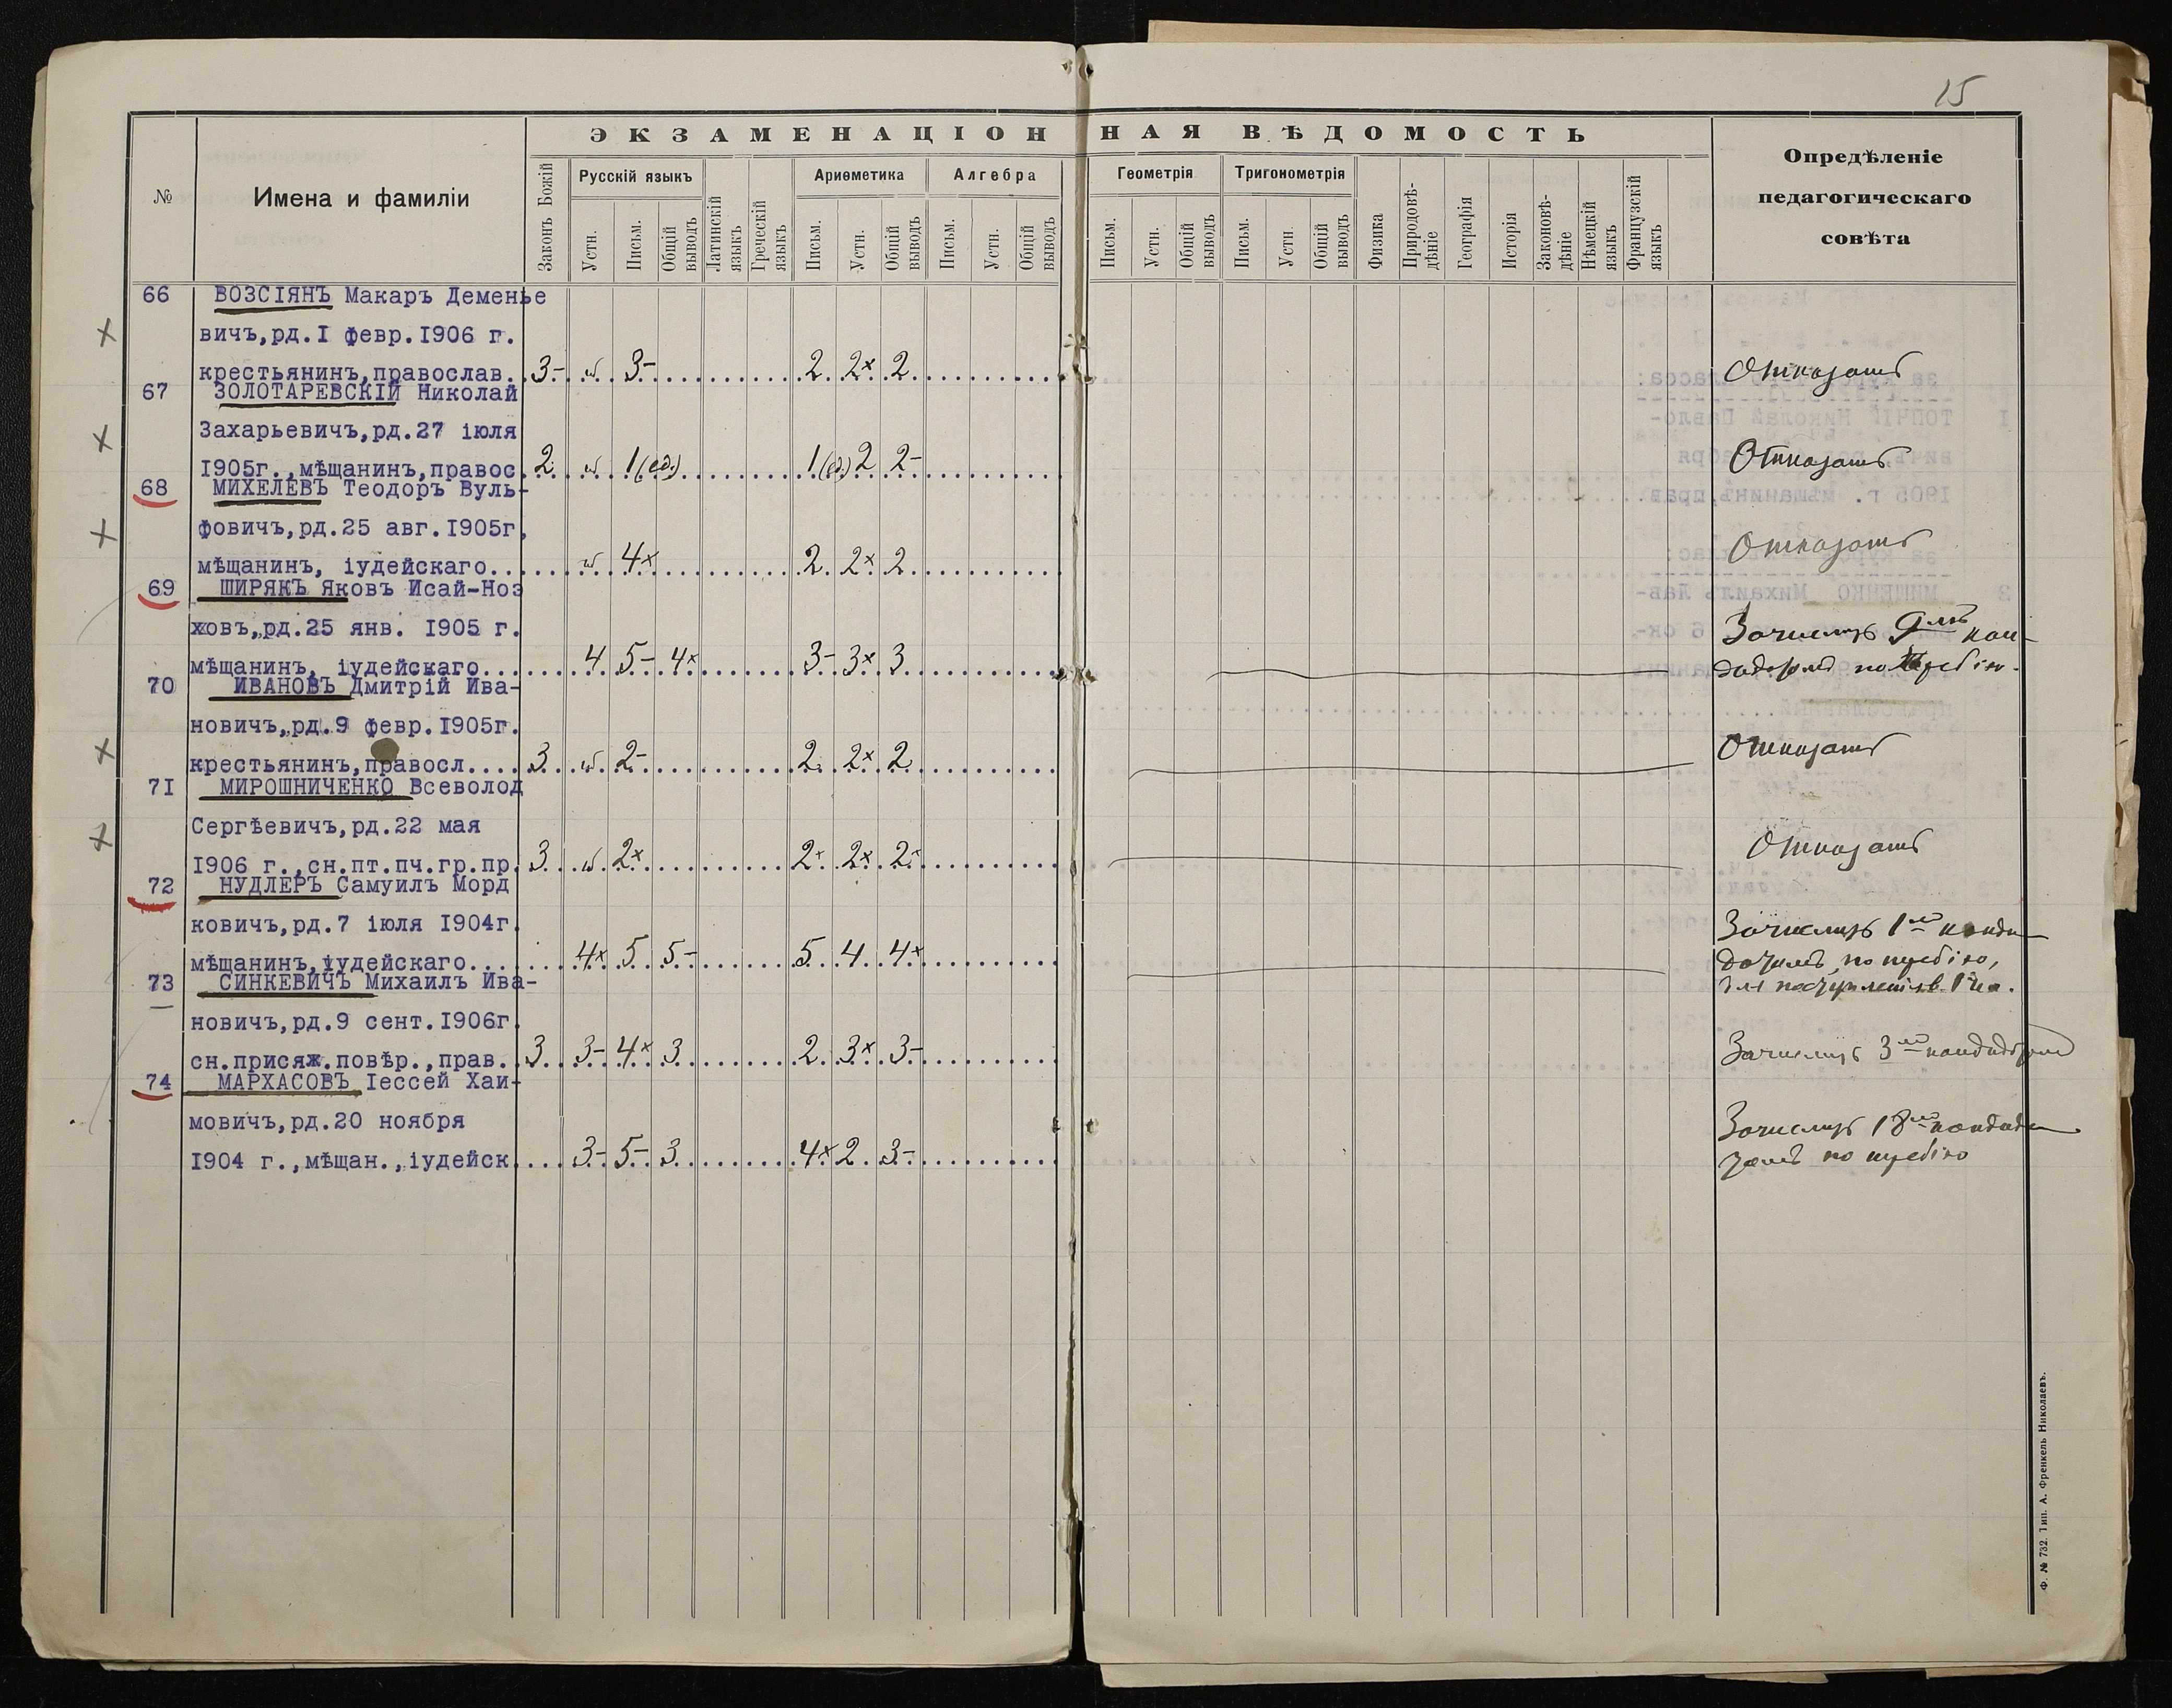 15
ЭКЗАМЕНАЦІОННАЯ ВѢДОМОСТЬ
№
Имена и фамиліи
Законъ Божій
Русскій языкъ
Устн.
Письм.
Общій выводъ
Латинскій языкъ
Греческій языкъ
Ариѳметика
Письм.
Устн.
Общій выводъ
Алгебра
Письм.
Устн.
Общій выводъ
Геометрія
Письм.
Устн.
Общій выводъ
Тригонометрія
Письм.
Устн.
Общій выводъ
Физика
Природовѣ-
дѣніе
Географія
Исторія
Законовѣ-
дѣніе
Нѣмецкій языкъ
Французскій языкъ
Опредѣленіе
педагогическаго
совѣта
66 ВОЗСІЯНЪ Макаръ Деменье
вичъ,рд.I февр.I906 г.
крестьянинъ,православ. 3- 3- 2 2x 2 Отказать
67 ЗОЛОТАРЕВСКІЙ Николай
Захарьевичъ,рд.27 іюля
I905г.,мѣщанинъ,правос. 2 1(ед.) 1(ед.) 2 2- Отказать
68 МИХЕЛЕВЪ Теодоръ Вуль-
фовичъ,рд.25 авг.I905г,
мѣщанинъ, іудейскаго... 4x 2 2x 2 Отказать
69 ШИРЯКЪ Яковъ Исай-Ноэ
ховъ,рд.25 янв. I905 г.
мѣщанинъ, іудейскаго... 4 5- 4x 3- 3x 3 Зачислить 9мъ кан-
дидатомъ по жребію.
70 ИВАНОВЪ Дмитрій Ива-
новичъ,рд.9 февр.I905г.
крестьянинъ,правосл.... 3 2- 2 2x 2 Отказать
7I МИРОШНИЧЕНКО Всеволод
Сергѣевичъ,рд.22 мая
I906 г.,сн.пт.пч.гр.пр. 3 2x 2x 2x 2x Отказать
72 НУДЛЕРЪ Самуилъ Морд
ковичъ,рд.7 іюля I904г.
мѣщанинъ,іудейскаго... 4x 5 5- 5 4 4x Зачислить 1мъ канди-
датомъ, по жребію,
для поступленія в I кл.
73 СИНКЕВИЧЪ Михаилъ Ива-
новичъ,рд.9 сент.I906г.
сн.присяж.повѣр.,прав. 3 3- 4x 3 2 3x 3- Зачислить 3мъ кандидатомъ
74 МАРХАСОВЪ Іессей Хаи-
мовичъ,рд.20 ноября
I904 г.,мѣщан.,іудейск. 3- 5- 3 4x 2 3- Зачислить 18мъ кандида-
томъ по жребію
Ф. № 732. Тип. А. Френкель Николаевъ.